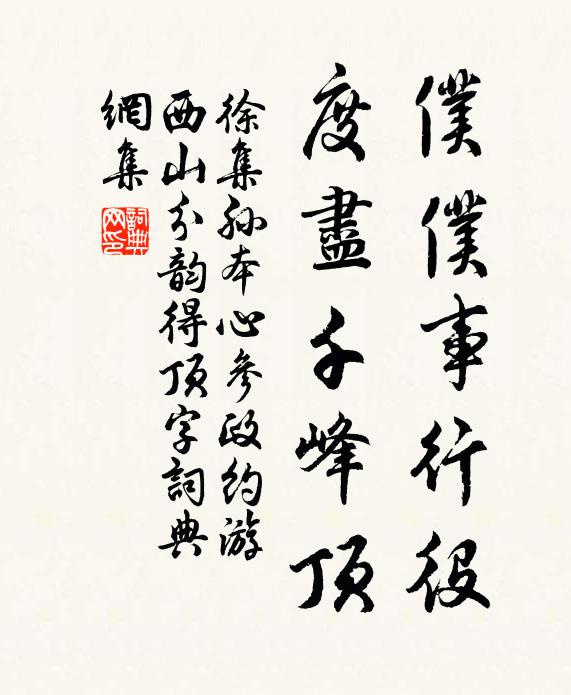 僕僕事行役
度盡千峰頂
徐集孙本心參政約游
西山分韵得頂字詞典
網集
詞典
网印